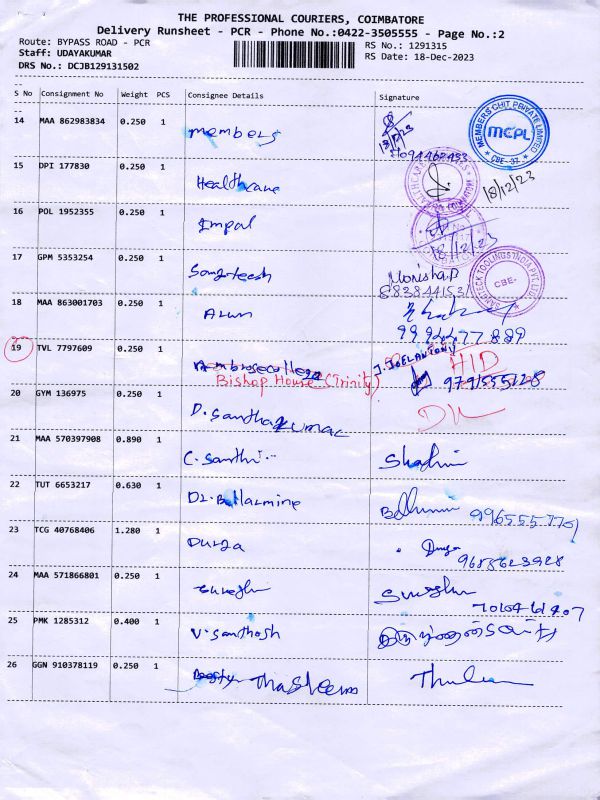 THE PROFESSIONAL COURIERS, COIMBATORE
Delivery Runsheet - PCR - Phone No.:0422-3505555 - Page No.:2
Route: BYPASS ROAD - PCR
RS No.: 1291315
Staff: UDAYAKUMAR
RS Date: 18-Dec-2023
DRS No.: DCJB129131502
S No Consignment No Weight PCS Consignee Details Signature
14 MAA 862983834 0.250 1 members
MEMBERS CHIT PRIVATE LIMITED
MCPL
15 DPI 177830 0.250 1 Healthcare 18/12/23
16 POL 1952355 0.250 1 Impal 18/12/23
17 GPM 5353254 0.250 1
CBE-
18 MAA 863001703 0.250 1 Arun
19 TVL 7797609 0.250 1 Ambrosecollege J. JOELANTONY
Bishop House (Trinity) HID
20 GYM 136975 0.250 1 D. Santhakumar
21 MAA 570397908 0.890 1 C. Santhi
22 TUT 6653217 0.630 1 Dr. Bellarmine
23 TCG 40768406 1.280 1 Durga Durga
24 MAA 571866801 0.250 1 Sureshi
25 PMK 1285312 0.400 1 V. Santhosh
26 GGN 910378119 0.250 1 Thasleema